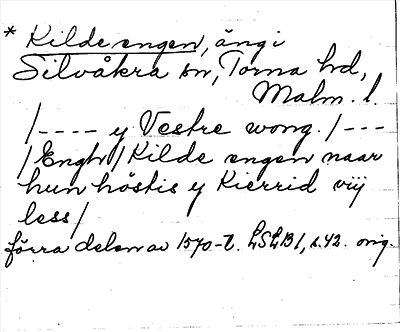 * Kilde engen, äng i
Silvåkra sn, Torna hd,
Malm. l.
/---- y Vestre wong. /---
/Engh/ Kilde engen naar
hun höstis y Kierrid vij
less/
förra delen av 1570-t. LSLB1, s.42. orig.